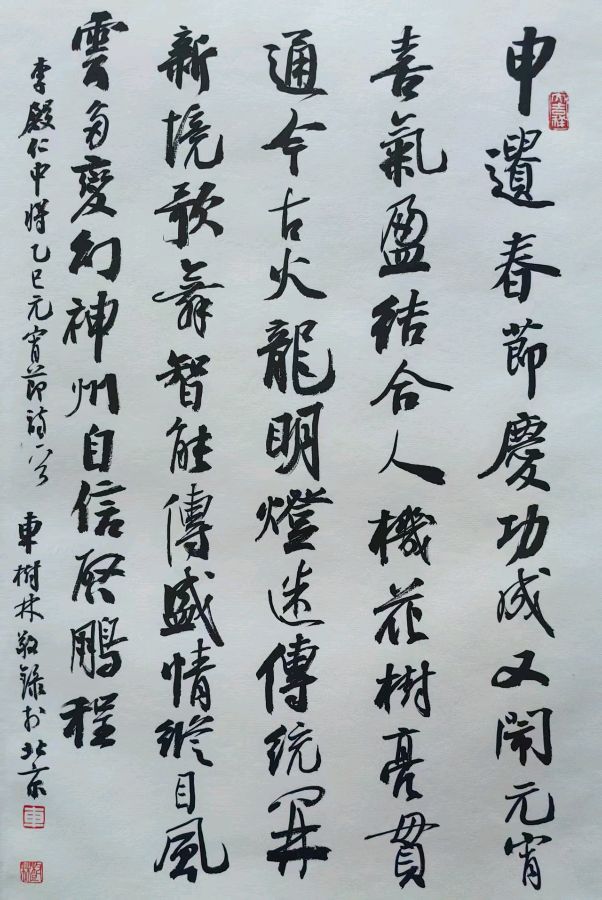 申遺春節慶功成又鬧元宵
喜氣盈結合人機花樹亮貫
通今古火龍明燈迷傳統開
新境歌舞智能傳盛情縱目風
雲多變幻神州自信啟鵬程
李殿仁中將乙巳元宵節詩一首 車樹林敬錄於北京
車